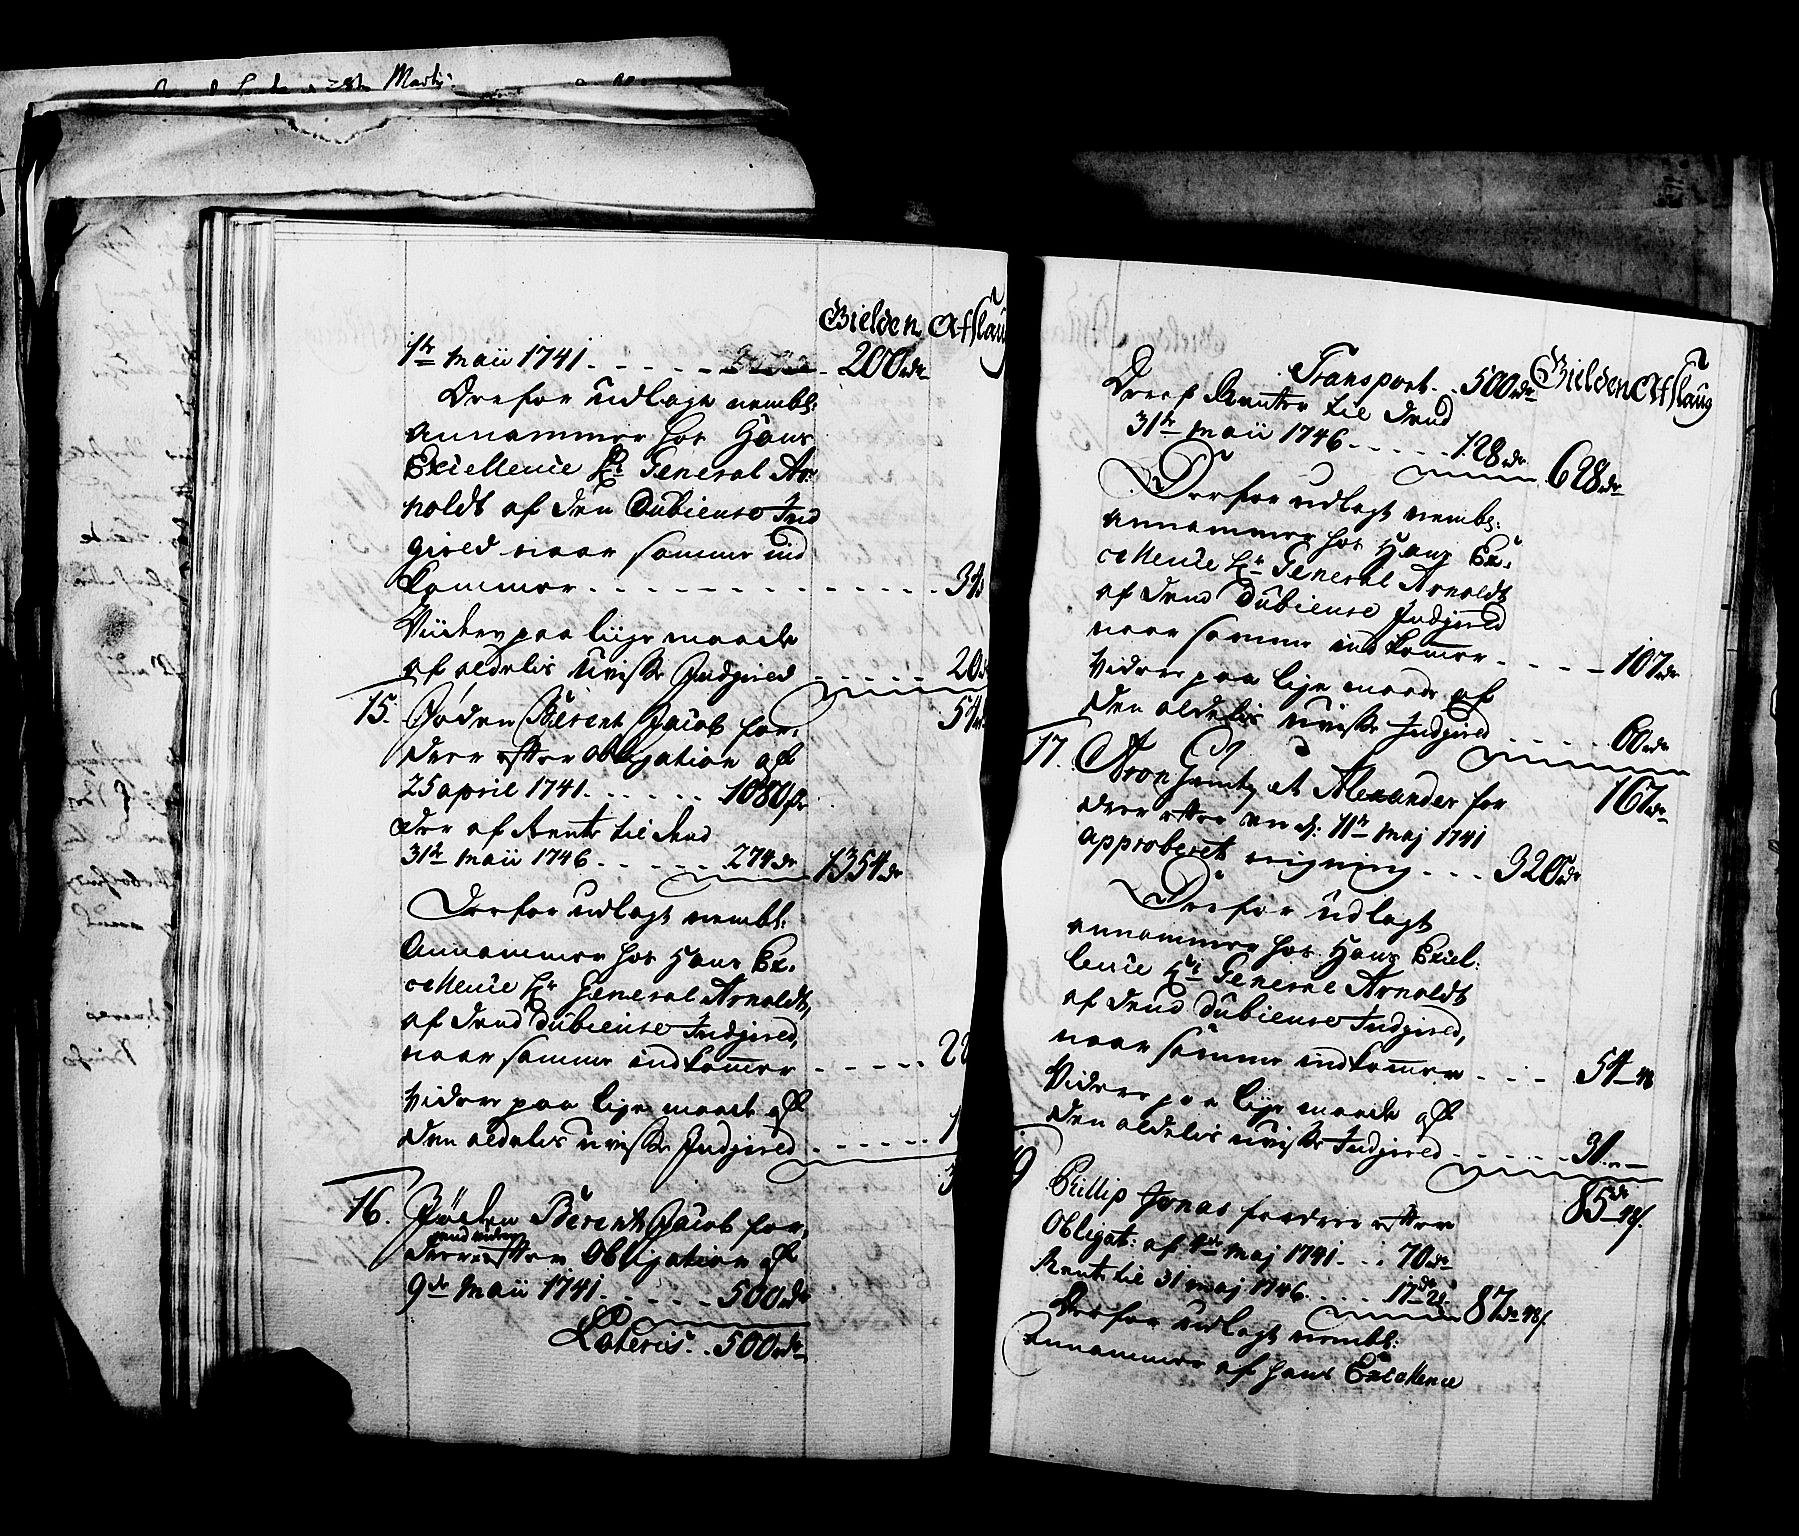 Martij
Gielden Afslaug
1te Maii 1741. . . . . . 200rdr
Derfor Udlagt nembl:
annammer hos Hans
Excellence Hr General Ar
noldt af den Dubieuse Ind
gield naar samme ind
kommer . . . . . . . . . . 34
Viidere paa liige maade
af aldelis uvisse Indgield . . . . 20
54
15. Jøden Berent Jacob for,
drer efter Obligation af
25 april 1741. . . . . . 1080
der af Rente til dend
31te Maii 1746 . . . . . 274dr 1354dr
Derfor Udlagt nembl:
annammer hos Hans Ex,
cellence Hr General Arnoldt,
af dend Dubieuse Indgield,
naar samme indkommer . . . . . 22
Videre paa lige maade af
den aldelis uvisse Indgield . . . . . 1
3
16. Jøden Berent Jacob for,
drer efter Obligation af
9de Maii 1741. . . . . 500rdr
Lateris. . 500rdr
Gielden Afslaug
Transport . . 500rdr
Deraf Renter til dend
31te Maii 1746 . . . . . 128rdr 628rdr
Derfor udlagt nembl:
annammer hos Hans Ex,
cellence Hr General Arnoldt
af dend Dubieuse Indgield
naar samme indkommer . . . . 107rdr
Videre paa lige maade af
den aldelis uvisse Indgield . . . . . 60rdr
167rdr
17. Aron et Alexander for
drer efter en d: 11te Maj 1741
approberet reigning . . . 320rdr
Derfor Udlagt
annammer hos Hans Excel:
lence Hr General Arnoldt
af dend Dubieuse Indgield,
naar samme indkommer . . . 54-48
Videre paa lige maade af
den aldelis uvisse Indgield . . . . . . 31
85dr-48s.
Phillip Jonas fordrer efter
Obligat: af 4de Maj 1741 . . . 70rdr
Rente til 31 Maj 1746 . . . . 17dr 87dr 48s.
Derfor udlagt nembl:
annammer af Hans Excellence